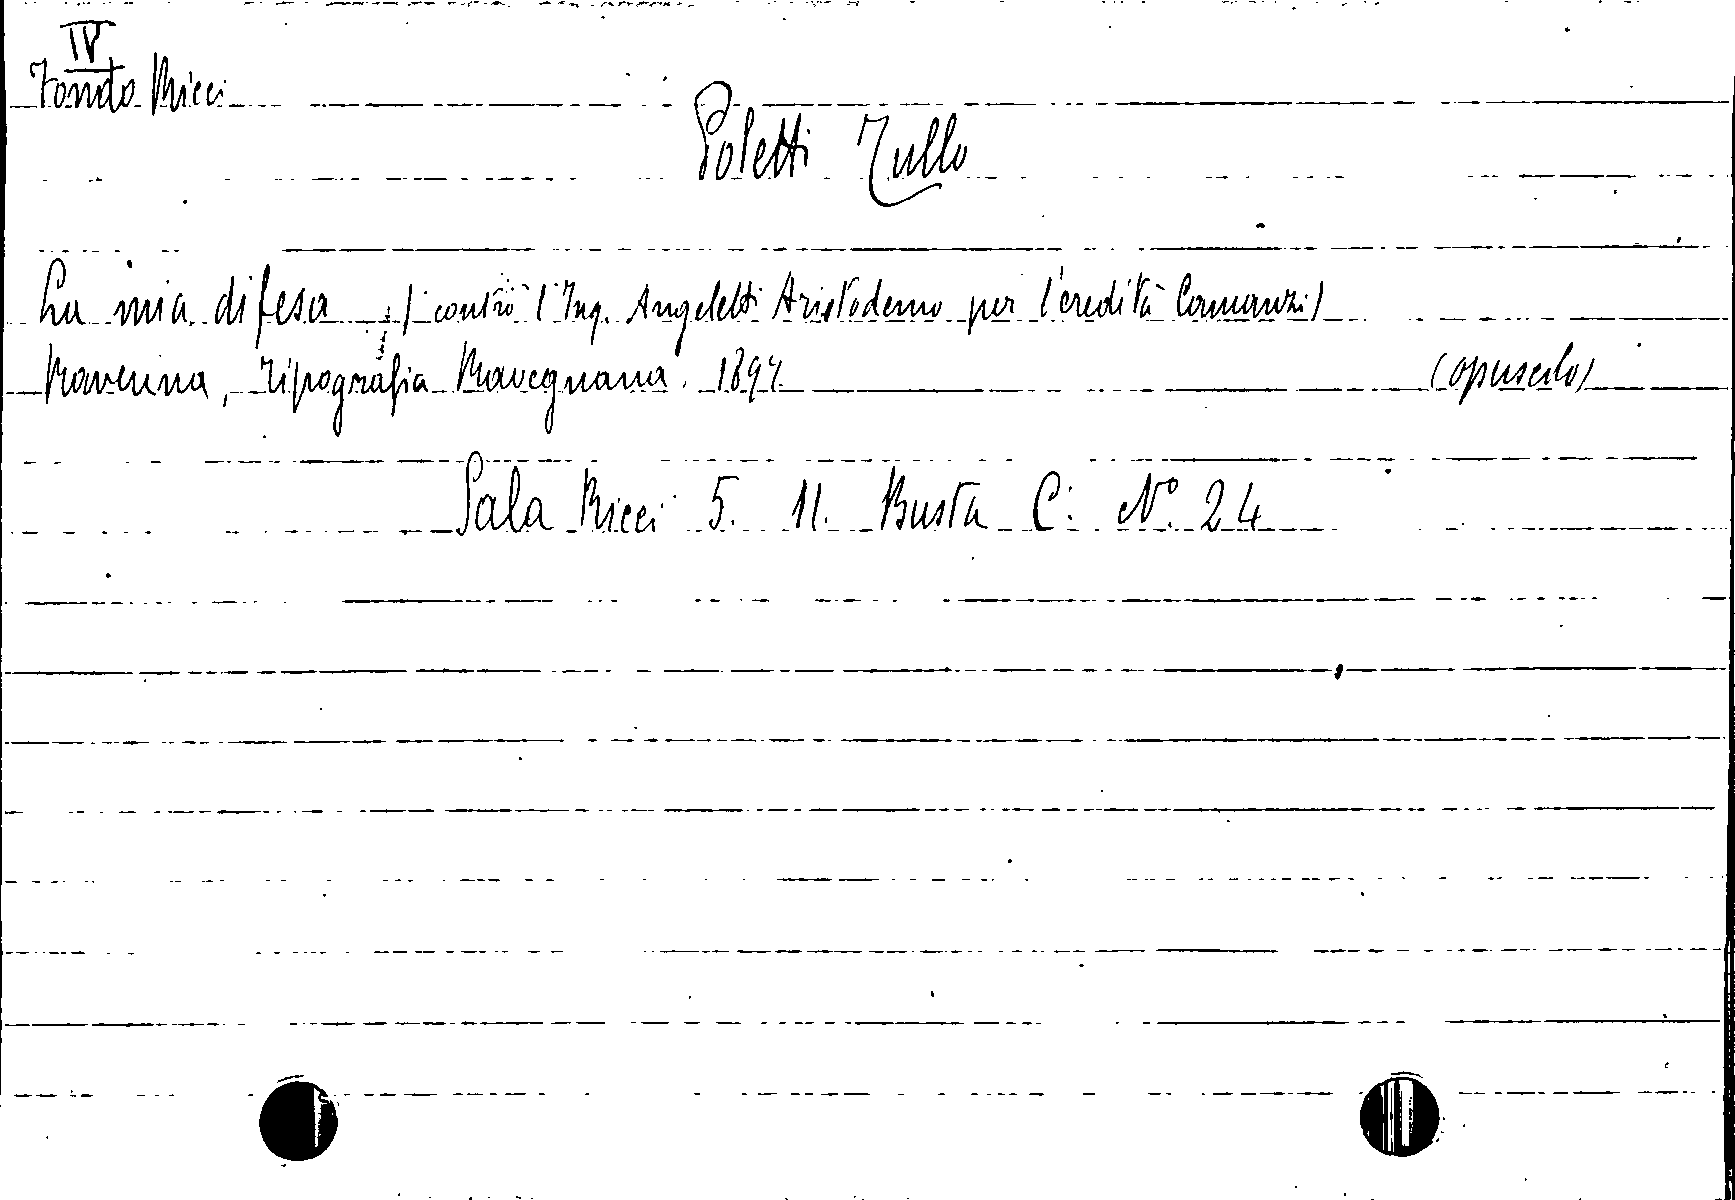 IV
Fondo Ricci
Poletti Tullo
La mia difesa (contro l'Ing. Angeletti Aristodemo per l'eredità Comanzi)
Ravenna, Tipografia Ravegnana. 1894 (opuscolo)
Sala Ricci 5. 11. Busta C. N.° 24